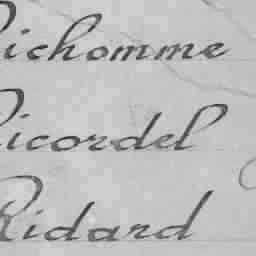 Richomme
Ricordel
Ridard